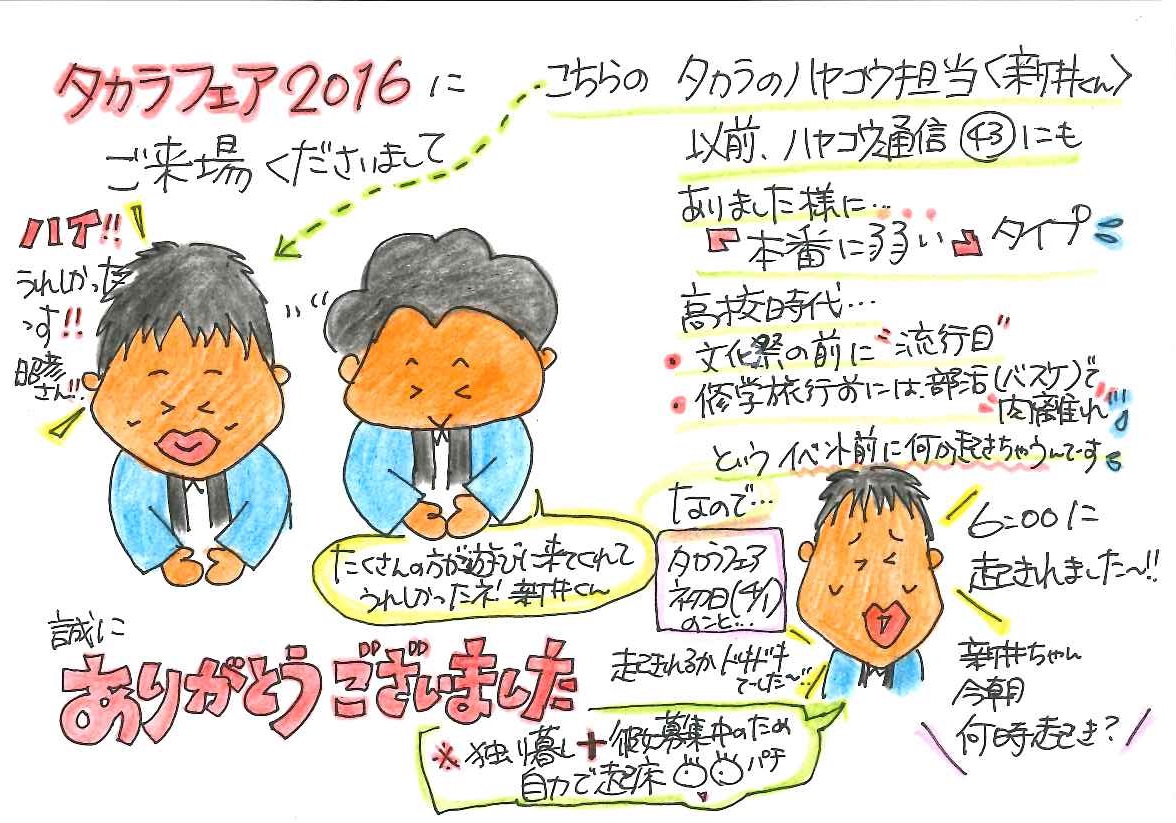 タカラフェア2016に
ご来場くださいまして
ハイ!!
うれしかった
っす!!
昭彦
さん!!
たくさんの方が遊びに来てくれて
うれしかったネ!新井くん
誠に
ありがとうございました
こちらの タカラのハヤゴウ担当〈新井くん〉
以前、ハヤゴウ通信㊸にも
ありました様に…
『本番に弱い』タイプ
高校時代…
・文化祭の前に"流行目"
・修学旅行前には、部活(バスケ)で
"肉離れ"!!
というイベント前に何か起きちゃうんでーす
なので…
タカラフェア
初日(4/1)
のこと…
新井ちゃん
今朝
何時起き?
6:00に
起きれました〜!!
起きれるかドキドキ
でーした〜!!
※独り暮し+彼女募集中のため
自力で起床 パチ